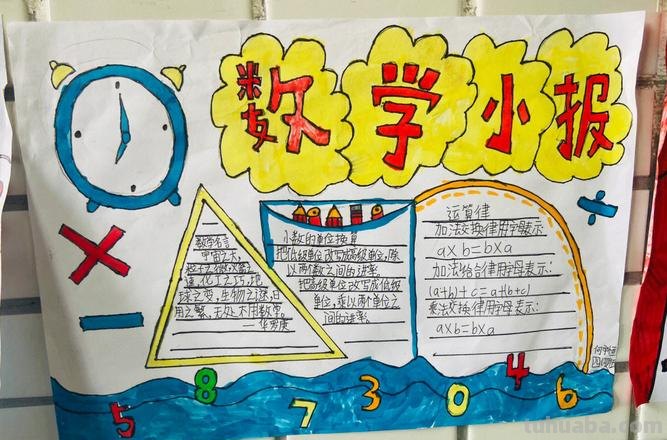 数学小报
数学名言
宇宙之大,
粒子之微,火箭之
道,化工之巧,地
球之变,生物之谜,日
用之繁,无处不用数学。
——华罗庚
小数的单位换算
把低级单位改写成高级单位,除
以两个数之间的进率
把高级单位改写成低级
单位,乘以两个单位之
间的进率。
运算律
加法交换律用字母表示:
a×b=b×a
加法结合律用字母表示:
(a+b)+c=a+(b+c)
乘法交换律用字母表示:
a×b=b×a
5 8 7 3 0 4 6
tuhuaba.com